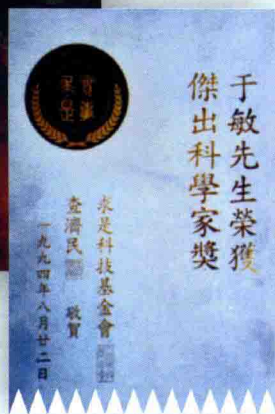 于敏先生榮獲
傑出科學家獎
求是科技基金會
查濟民 敬賀
一九九四年八月廿二日